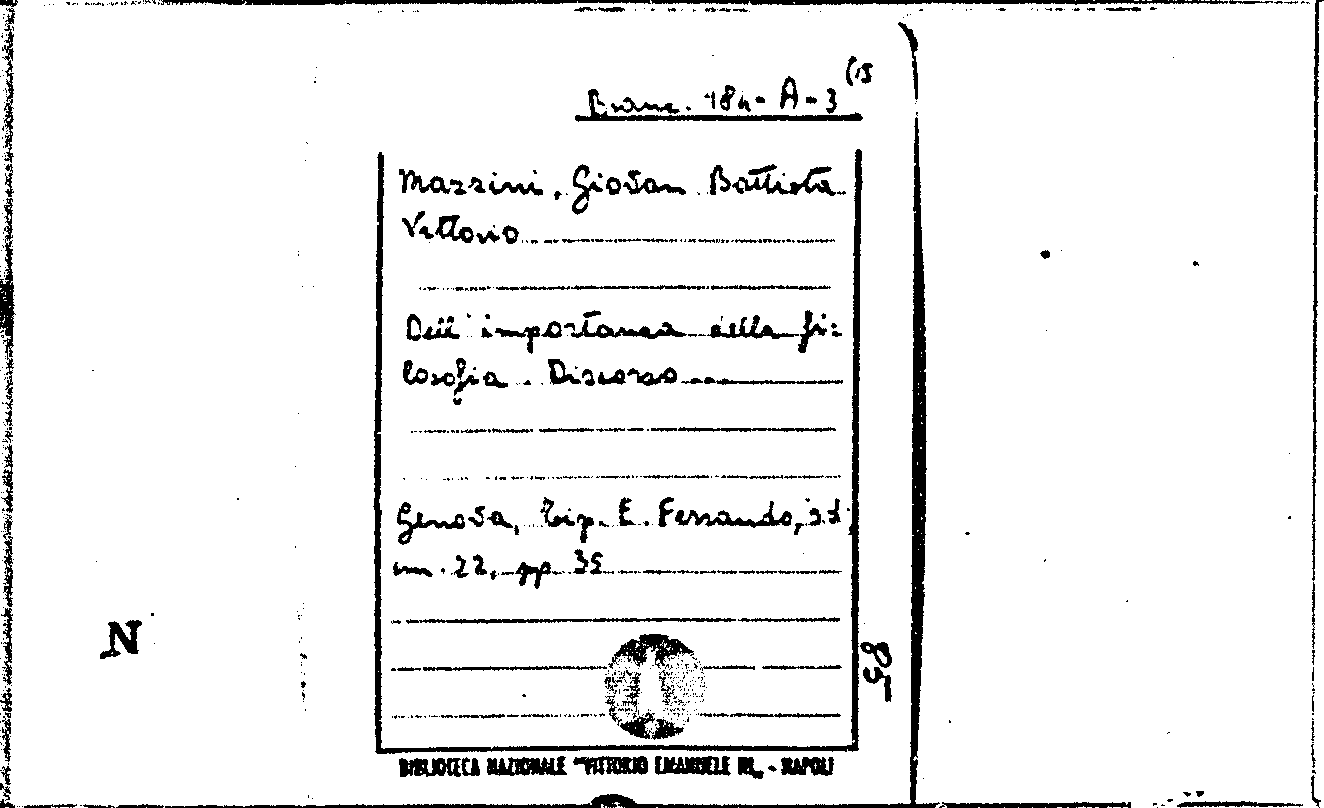 Branc. 184- A-3 (15
Mazzini, Giovan Battista
Vittorio
Dell' importanza della fi=
losofia. Discorso...
Genova, Tip. E. Ferrando, s.d,
mm. 22, pp 35
N
85
BIBLIOTECA NAZIONALE "VITTORIO EMANUELE III„ - NAPOLI